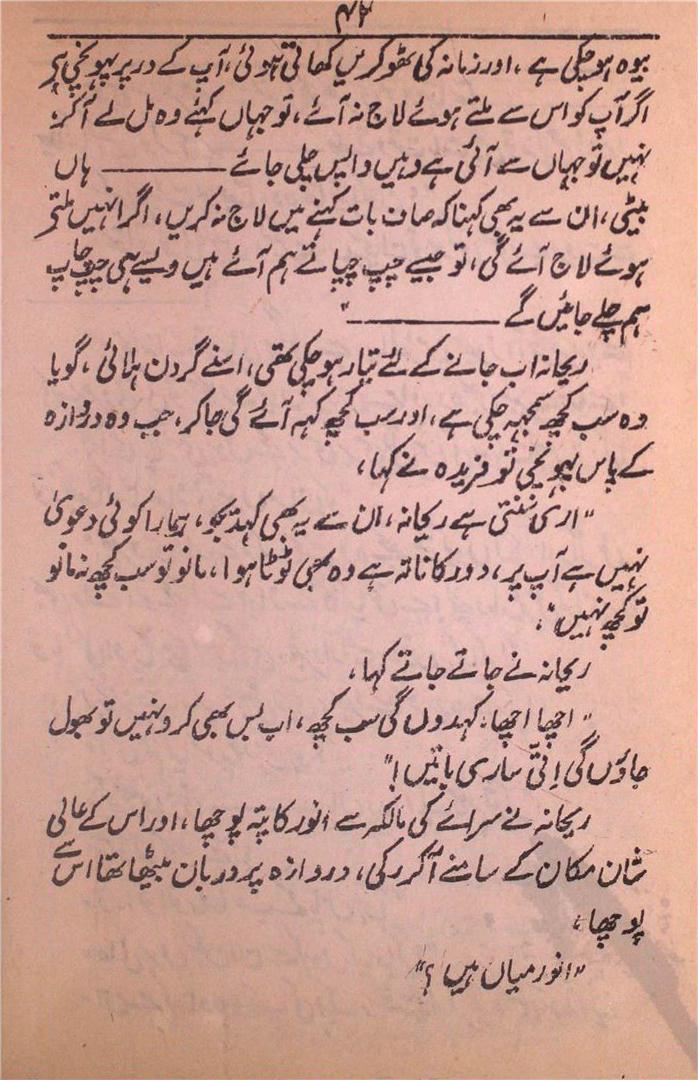 ۴۲
بیوہ ہو چکی ہے، اور زمانہ کی ٹھوکریں کھاتی ہوئی، آپ کے در پر پہونچی ہے
اگر آپ کو اس سے ملتے ہوئے لاج نہ آئے، تو جہاں کہئے وہ مل لے آکر،
نہیں تو جہاں سے آئی ہے وہیں واپس چلی جائے ——— ہاں
بیٹی، ان سے یہ بھی کہنا کہ صاف بات کہنے میں لاج نہ کریں، اگر انہیں ملتے
ہوئے لاج آئے گی، تو جیسے چپ چپاتے ہم آئے ہیں ویسے ہی چپ چاپ
ہم چلے جائیں گے ———"
ریحانہ اب جانے کے لئے تیار ہو چکی تھی، اسنے گردن ہلائی، گویا
وہ سب کچھ سمجہہ چکی ہے، اور سب کچھ کہہ آئے گی جاکر، جب وہ دروازہ
کے پاس پہونچی تو فریدہ نے کہا،
"اری سُنتی ہے ریحانہ، ان سے یہ بھی کہدیجو، ہمارا کوئی دعویٰ
نہیں ہے آپ پر، دور کا ناتہ ہے وہ بھی ٹوٹا ہوا، مانو تو سب کچھ نہ مانو
تو کچھ نہیں"،
ریحانہ نے جاتے جاتے کہا،
"اچھا اچھا، کہدوں گی سب کچھ، اب بس بھی کرو نہیں تو بھول
جاؤں گی اِتنی ساری باتیں!"
ریحانہ نے سرائے کی مالکہ سے انور کا پتہ پوچھا، اور اس کے عالی
شان مکان کے سامنے آکر رکی، دروازہ پر دربان بیٹھا تھا اس سے
پوچھا،
"انور میاں ہیں؟"